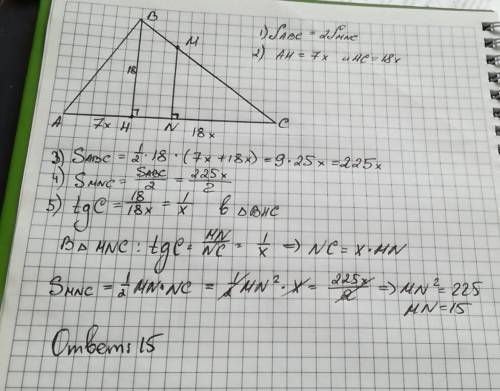 B
M
18
A 7x H N 18x C
1) S_ABC = 2S_MNC
2) AH = 7x и HC = 18x
3) S_ABC = 1/2 · 18 · (7x + 18x) = 9 · 25x = 225x
4) S_MNC = S_ABC/2 = 225x/2
5) tgC = 18/18x = 1/x в △BHC
В △MNC: tgC = MN/NC = 1/x ⇒ NC = x · MN
S_MNC = 1/2 MN · NC = 1/2 MN² · x = 225x/2 ⇒ MN² = 225
MN = 15
Ответ: 15